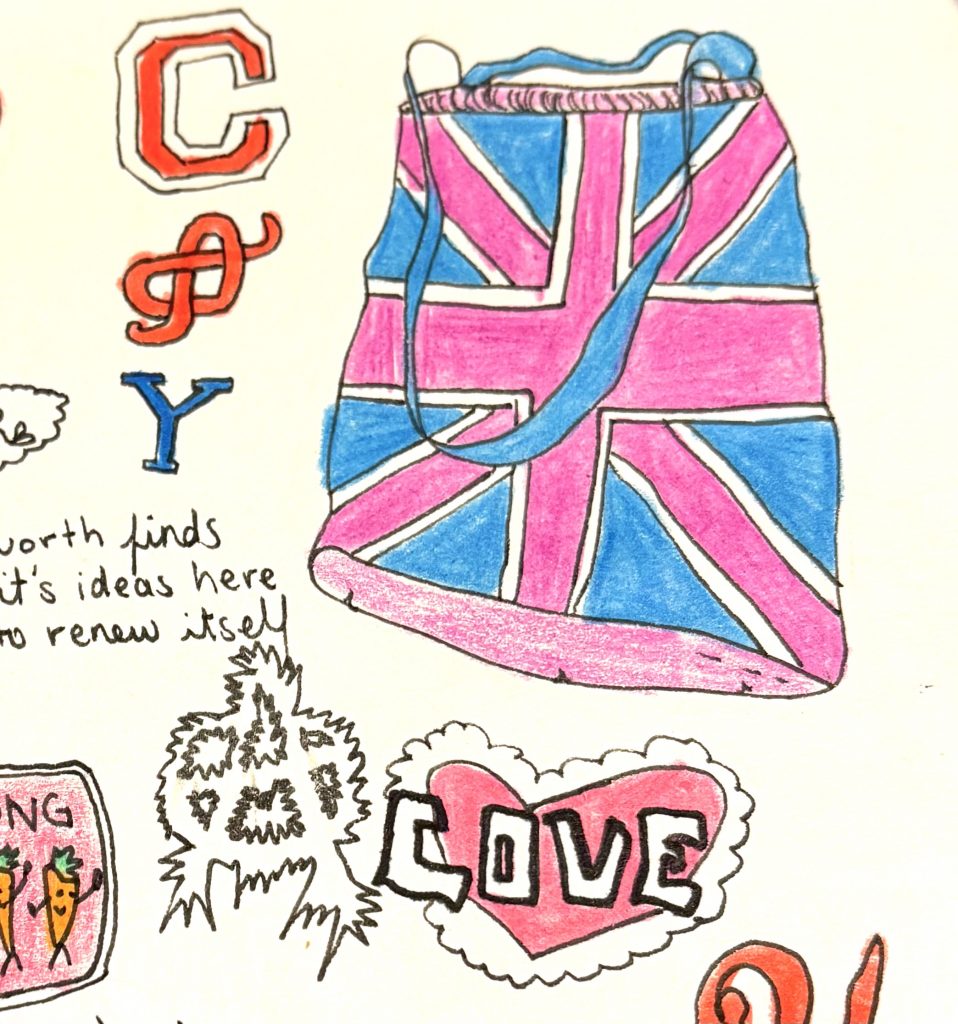 C
&
Y
worth finds
it's ideas here
to renew itself
ONG
LOVE